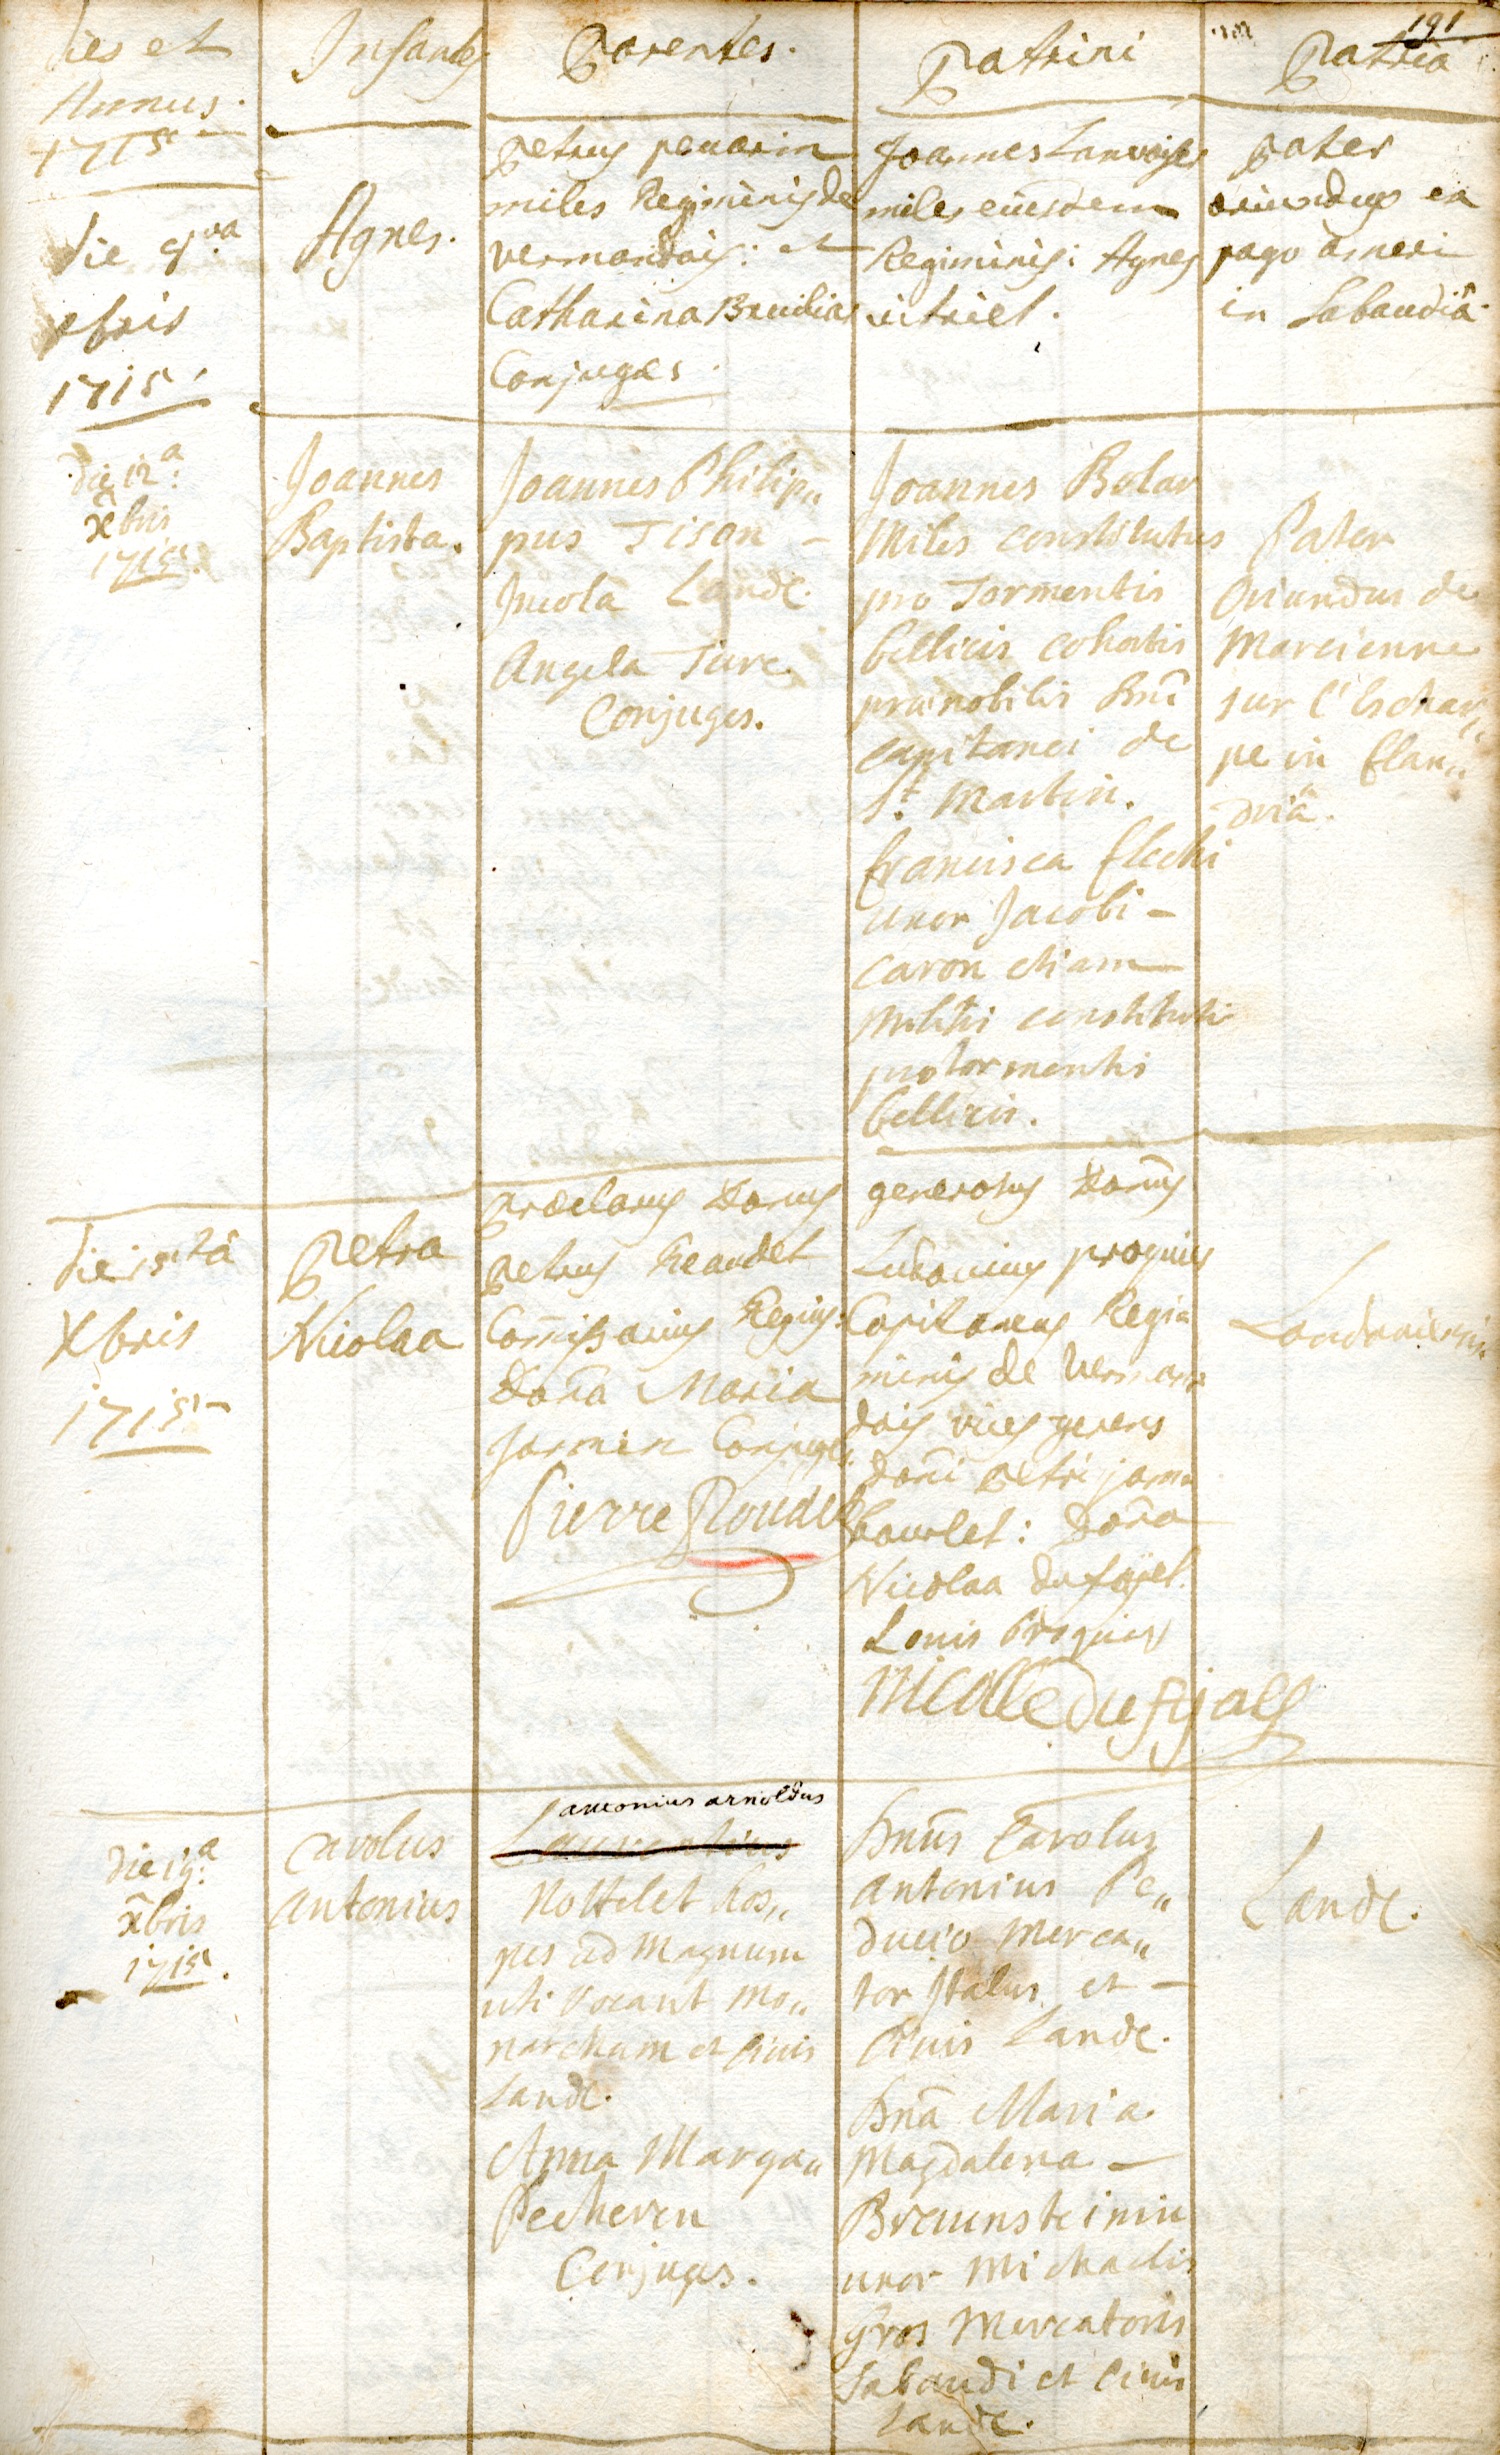 191
Dies et
Annus.
1715
Infantes
Parentes.
Patrini
Patria
die 9.na
xbris
1715
Agnes.
petrus penarin
miles Regiminis de
vermandois: et
Catharina
Conjuges.
Joannes
miles eiusdem
Regiminis: Agnes
vitriel.
pater
oriundus ex
pago
in Sabaudiâ.
die 12.a
xbris
1715.
Joannes
Baptista.
Joannes Philip„
pus Tison –
Incola Landc.
Angela Turc.
Conjuges.
Joannes Bolar
Miles constitutus
pro Tormentis
bellicis cohortis
prænobilis Dni
capitanei de
St. Martin.
francisca flechi
uxor Jacobi –
caron etiam
militis constituti
pro tormentis
bellicis.
Pater
Oriundus de
Marcienne
sur l'Eschar„
pe in flan„
driâ.
die 15tâ
Xbris
1715
Petra
Nicolaa
præclarus Domus
petrus Reaudet
Comissarius Regius:
Dona Maria
Jarmin Conjuges
Pierre Roudet
generosus Donus
Ludovicus proguies
Capitaneus Regi
minis de verman
dois vices gerens
doni petri
bourlet: Dona
Nicolaa du fajel.
Louis Proguies
nicolle du fajalf
die 19.a
xbris
1715.
Carolus
Antonius
antonius arnoldus
Laurentius
Nottelet hos„
pes ad Magnum
uti vocant Mo„
narcham et Civis
Landc.
Anna Marga„
Pecheren
Conjuges.
Dnus Carolus
Antonius Pe„
ducio Merca„
tor Italus et –
Civis Landc.
Dna Maria
Magdalena –
Braunsteinin
uxor Michaelis
Gros Mercatoris
Sabaudi et Civis
Landc.
Landc.